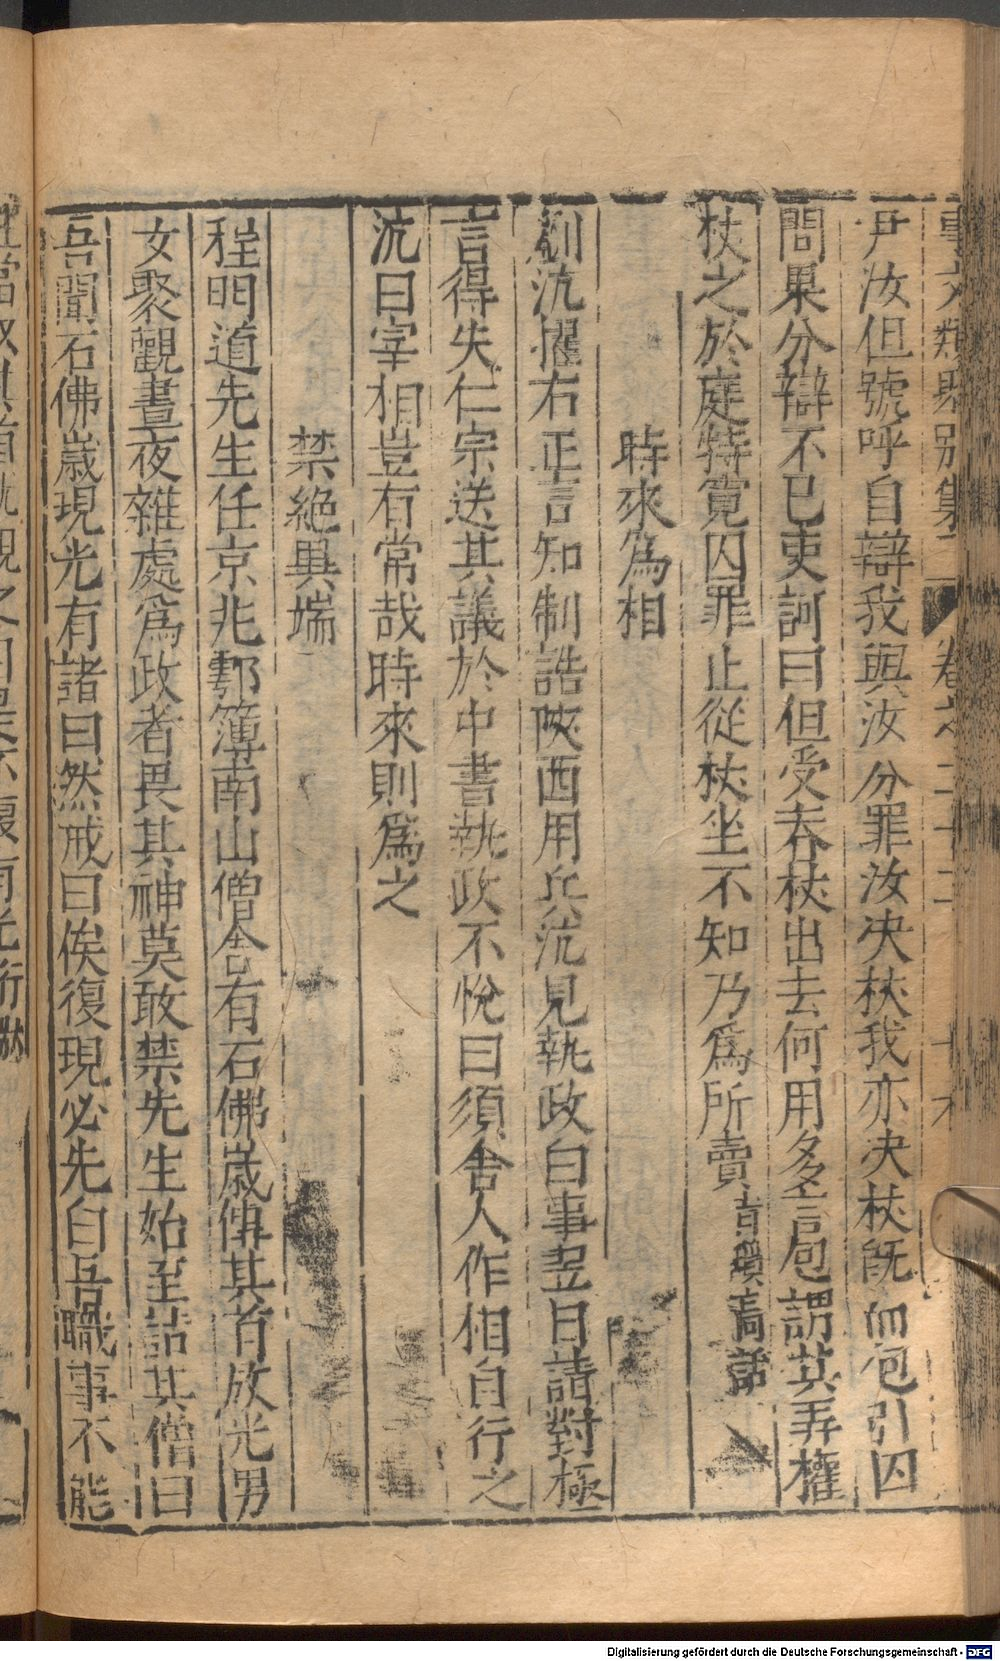 事文類聚別集 卷之二十三
尹汝但號呼自辯我與汝分罪汝决杖我亦决杖旣而包引囚
問果分辯不已吏訶曰但受春杖出去何用多言包謂其弄權
杖之於庭特寛囚罪止從杖坐不知乃爲所賣青瑣高議
時來爲相
劉沆擢右正言知制誥陜西用兵沆見執政白事翌日請對極
言得失仁宗送其議於中書執政不悅曰須舍人作相自行之
沆曰宰相豈有常哉時來則爲之
禁絕異端
程明道先生任京兆鄠簿南山僧舍有石佛歳傳其首放光男
女聚觀晝夜雜處爲政者畏其神莫敢禁先生始至詰其僧曰
吾聞石佛歳現光有諸曰然戒曰俟復現必先白吾職事不能
Digitalisierung gefördert durch die Deutsche Forschungsgemeinschaft - DFG